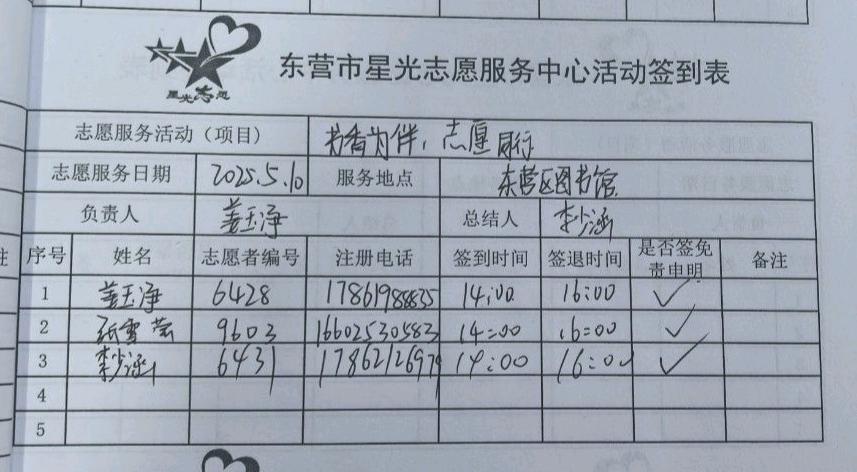 星光志愿
东营市星光志愿服务中心活动签到表
志愿服务活动（项目） 书香为伴，志愿同行
志愿服务日期 2025.5.10 服务地点 东营区图书馆
负责人 姜玉净 总结人 李少涵
序号 姓名 志愿者编号 注册电话 签到时间 签退时间 是否签免责申明 备注
1 姜玉净 6428 17861988835 14:00 16:00 ✓
2 张雪莹 9603 16602530583 14:00 16:00 ✓
3 李少涵 6431 17862126979 14:00 16:00 ✓
4
5